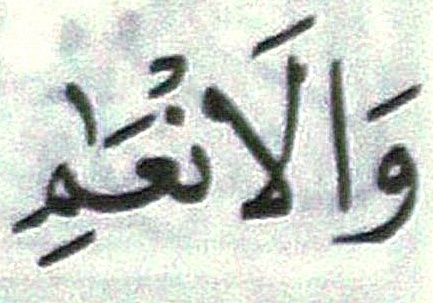 وَالَانْعَٰمِ